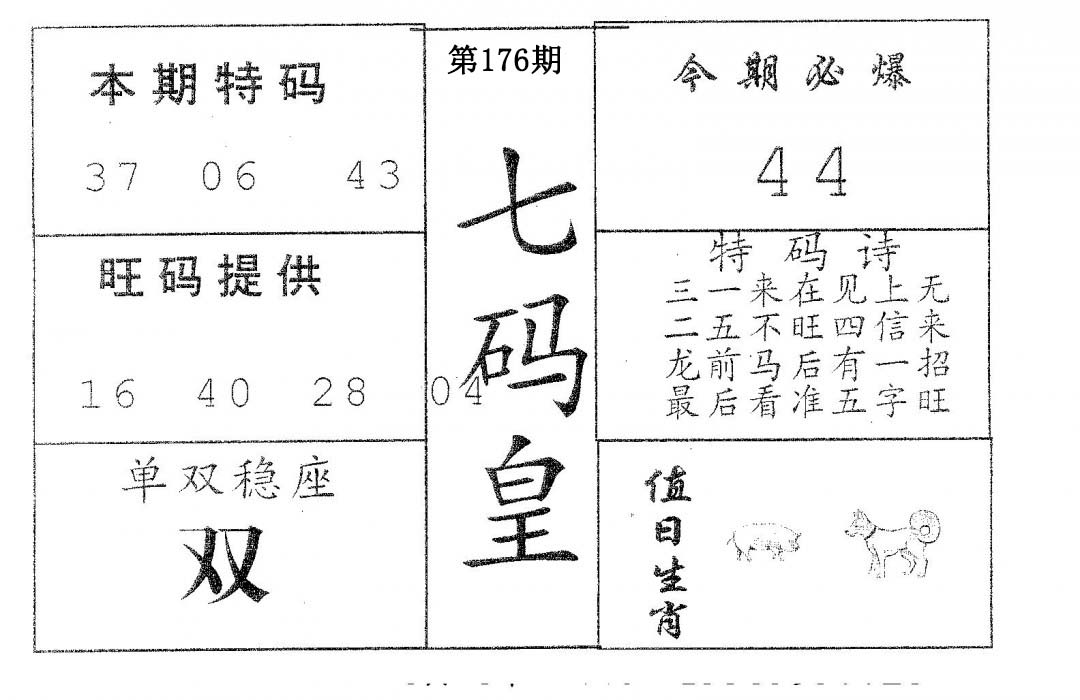 本期特码
37 06 43
旺码提供
16 40 28 04
单双稳座
双
第176期
七码皇
今期必爆
44
特码诗
三一来在见上无
二五不旺四信来
龙前马后有一招
最后看准五字旺
值日生肖